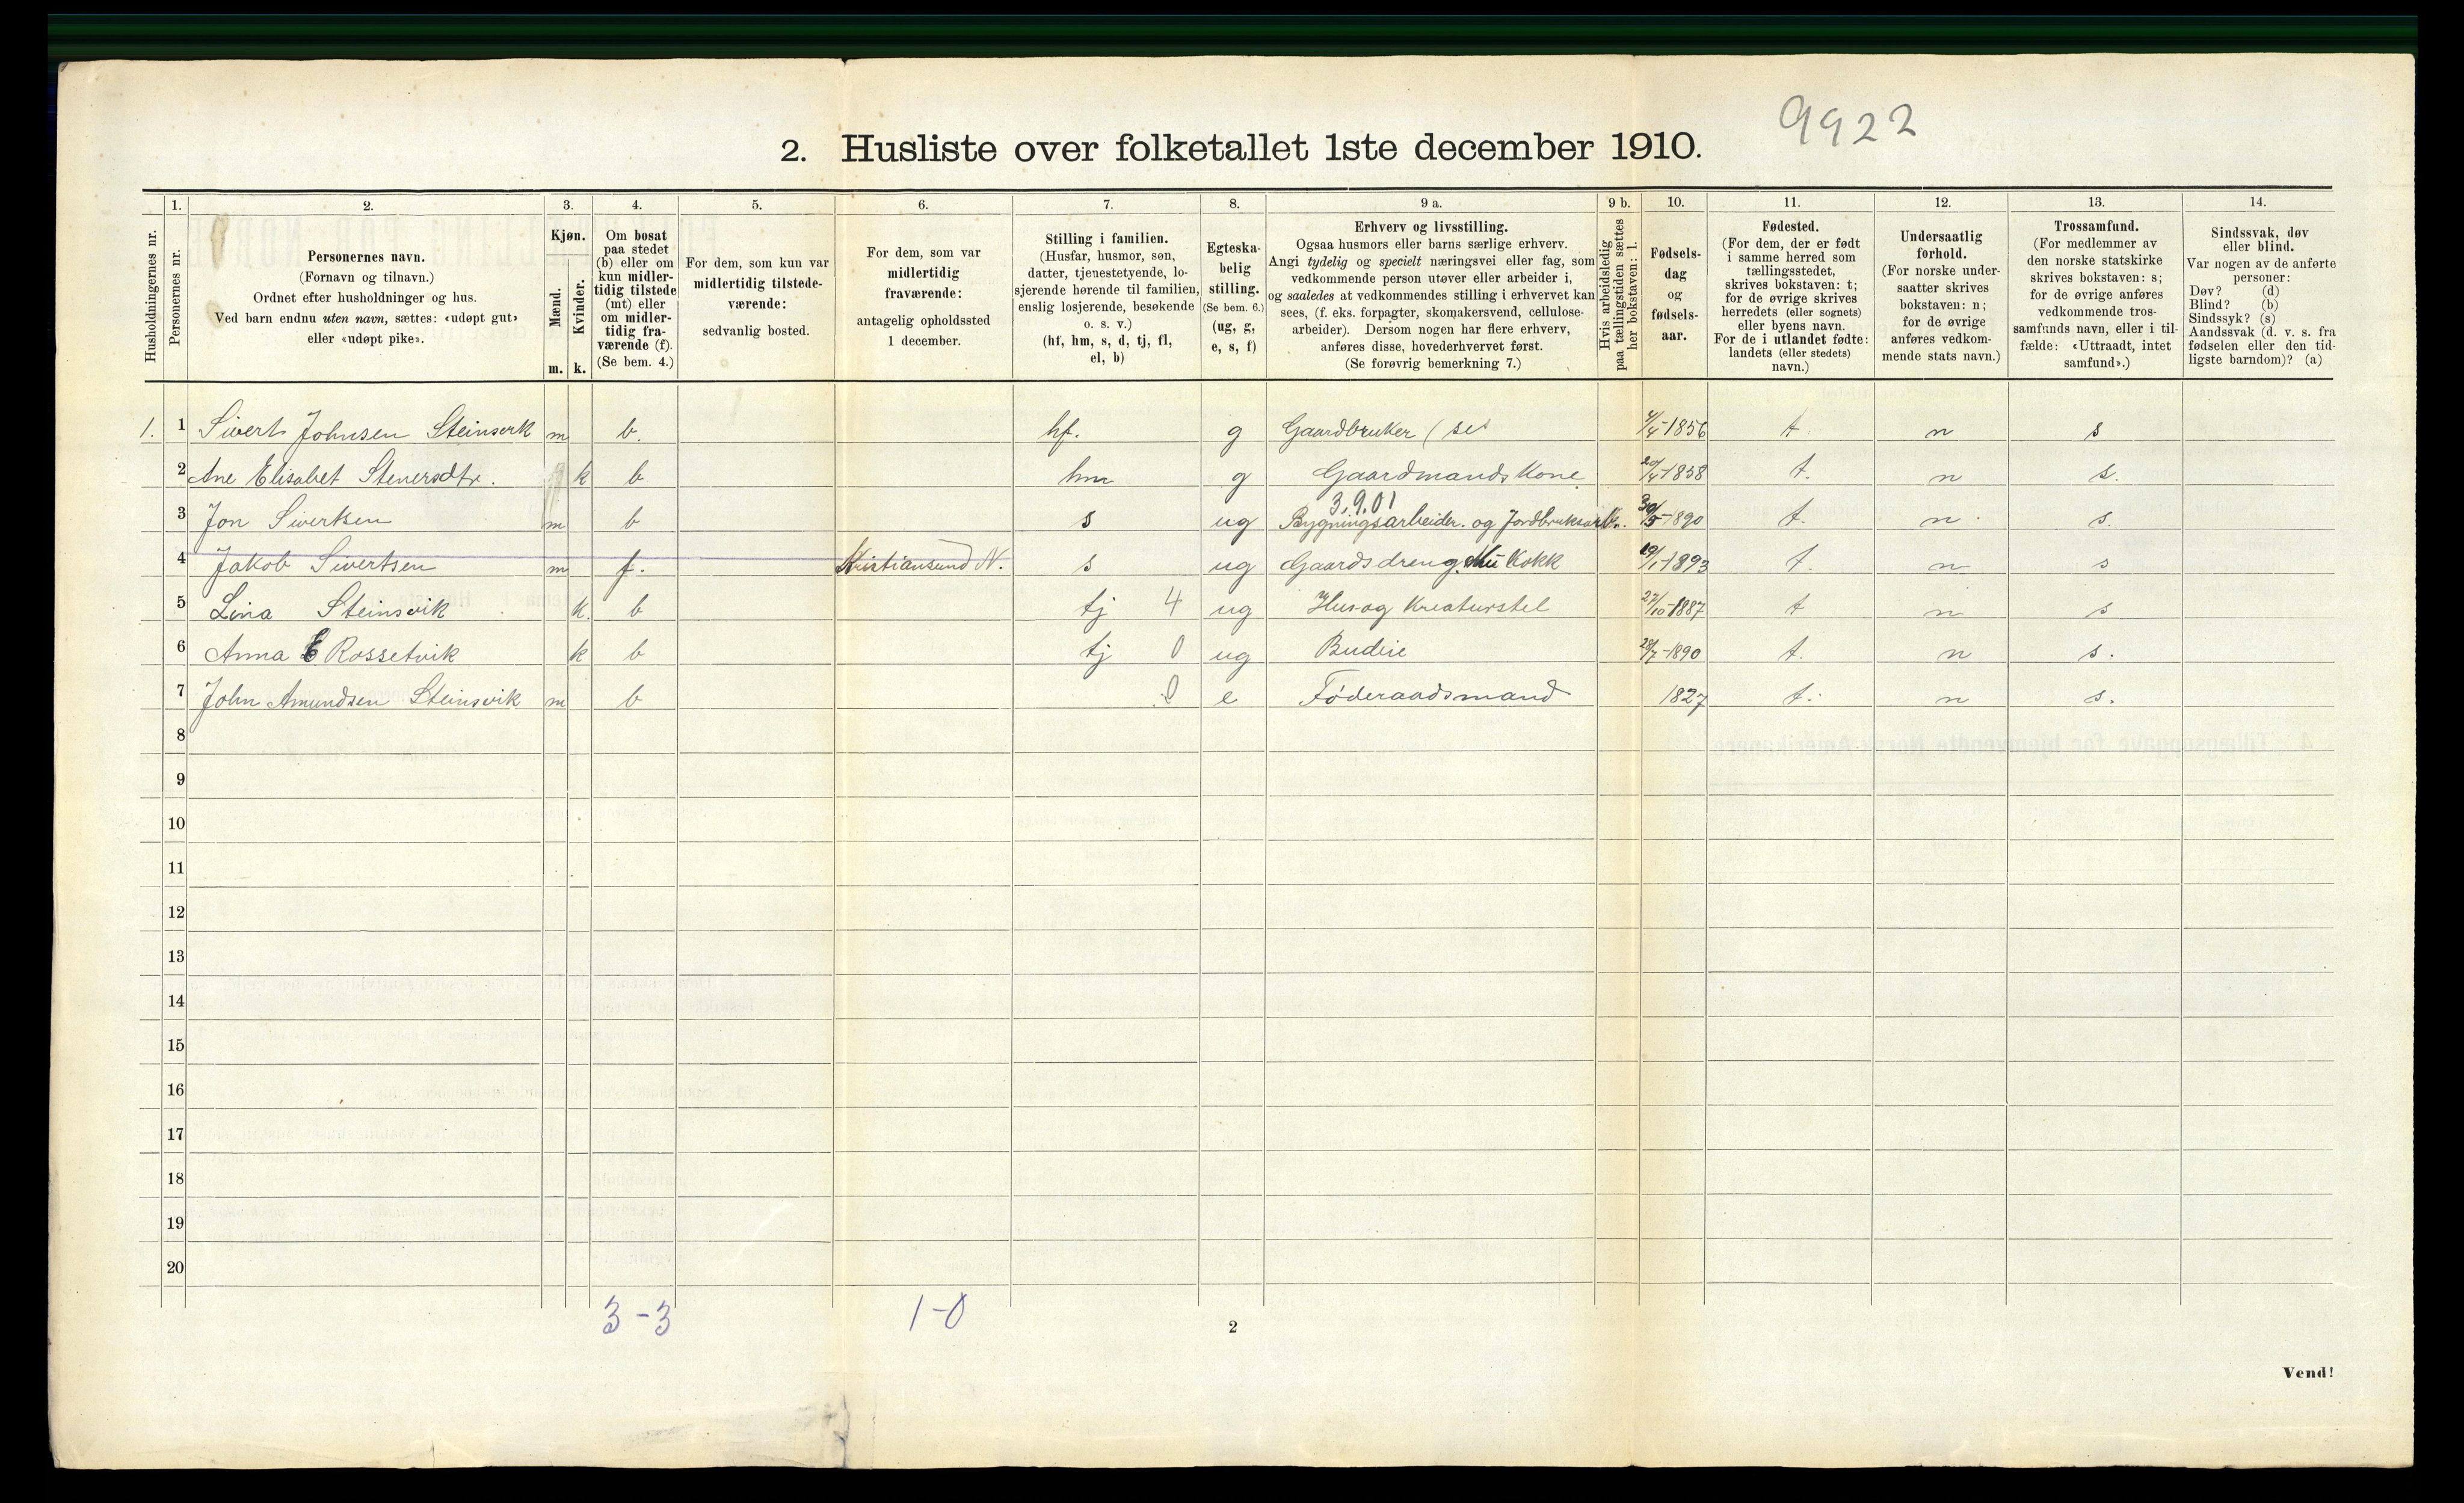 9922
2. Husliste over folketallet 1ste december 1910.
Husholdningernes nr.
1.
Personernes nr.
2.
Personernes navn.
(Fornavn og tilnavn.)
Ordnet efter husholdninger og hus.
Ved barn endnu uten navn, sættes: «udøpt gut»
eller «udøpt pike».
3.
Kjøn.
Mænd.
Kvinder.
m. k.
4.
Om bosat
paa stedet
(b) eller om
kun midler-
tidig tilstede
(mt) eller
om midler-
tidig fra-
værende (f).
(Se bem. 4.)
5.
For dem, som kun var
midlertidig tilstede-
værende:
sedvanlig bosted.
6.
For dem, som var
midlertidig
fraværende:
antagelig opholdssted
1 december.
7.
Stilling i familien.
(Husfar, husmor, søn,
datter, tjenestetyende, lo-
sjerende hørende til familien,
enslig losjerende, besøkende
o. s. v.)
(hf, hm, s, d, tj, fl,
el, b)
8.
Egteska-
belig
stilling.
(Se bem. 6.)
(ug, g,
e, s, f)
9 a.
Erhverv og livsstilling.
Ogsaa husmors eller barns særlige erhverv.
Angi tydelig og specielt næringsvei eller fag, som
vedkommende person utøver eller arbeider i,
og saaledes at vedkommendes stilling i erhvervet kan
sees, (f. eks. forpagter, skomakersvend, cellulose-
arbeider). Dersom nogen har flere erhverv,
anføres disse, hovederhvervet først.
(Se forøvrig bemerkning 7.)
9 b.
Hvis arbeidsledig
paa tællingstiden sættes
her bokstaven: l.
10.
Fødsels-
dag
og
fødsels-
aar.
11.
Fødested.
(For dem, der er født
i samme herred som
tællingsstedet,
skrives bokstaven: t;
for de øvrige skrives
herredets (eller sognets)
eller byens navn.
For de i utlandet fødte:
landets (eller stedets)
navn.)
12.
Undersaatlig
forhold.
(For norske under-
saatter skrives
bokstaven: n;
for de øvrige
anføres vedkom-
mende stats navn.)
13.
Trossamfund.
(For medlemmer av
den norske statskirke
skrives bokstaven: s;
for de øvrige anføres
vedkommende tros-
samfunds navn, eller i til-
fælde: «Uttraadt, intet
samfund».)
14.
Sindssvak, døv
eller blind.
Var nogen av de anførte
personer:
Døv? (d)
Blind? (b)
Sindssyk? (s)
Aandssvak (d. v. s. fra
fødselen eller den tid-
ligste barndom)? (a)
1. 1 Sivert Johnsen Steinsvik m b. hf. g Gaardbruker (sel 4/4-1856 t. n s
2 Ane Elisabet Stenersdtr. k b hm g Gaardmands Kone 20/4-1858 t. n s.
3.9.01
3 Jon Sivertsen m b s ug Bygningsarbeider. og Jordbruksarb. 30/5-1890 t. n. s.
4 Jakob Sivertsen m f. Kristiansund N. s ug Gaardsdreng. Kokk 19/1-1893 t. n s
5 Lina Steinsvik k. b tj 4 ug Hus og Kreaturstel 27/10-1887 t n s
6 Anna E Rossetvik k b tj 0 ug Budeie 28/7-1890 t. n s.
7 John Amundsen Steinsvik m b 0 e Føderaadsmand 1827 t. n s.
8
9
10
11
12
13
14
15
16
17
18
19
20
3-3 1-0
2
Vend!